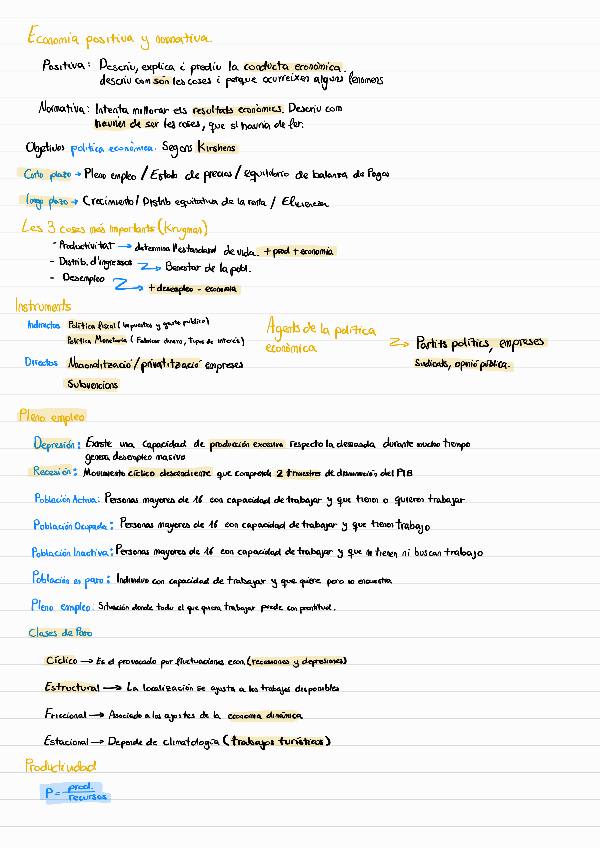 Economia positiva y normativa.
Positiva: Descriu, explica i prediu la conducta econòmica.
descriu com són les coses i perque ocurreixen alguns fenomens
Normativa: Intenta millorar els resultats econòmics. Descriu com
haurien de ser les coses, que s'hauria de fer.
Objetivos política económica. Segons Kirshens
Corto plazo → Pleno empleo / Estab de precios / equilibrio de balanza de Pagos
largo plazo → Crecimiento / Distrib equitativa de la renta / Eficiencia
Les 3 coses més importants (Krugman)
- Productivitat → determina l'estandard de vida. + prod + economia
- Distrib. d'ingressos → Benestar de la pobl.
- Desempleo → + desempleo - economia
Instruments
Indirectos Política fiscal (impuestos y gasto público)
Política Monetaria (Fabricar dinero, Tipos de interés)
Directos Nacionalització / privatització empreses
Subvencions
Agents de la política
econòmica → Partits polítics, empreses
Sindicats, opinió pública.
Pleno empleo
Depresión: Existe una capacidad de producción excesiva respecto la demanda durante mucho tiempo
genera desempleo masivo
Recesión: Movimiento cíclico descendiente que comprende 2 trimestres de disminución del PIB
Población Activa: Personas mayores de 16 con capacidad de trabajar y que tienen o quieren trabajar
Población Ocupada: Personas mayores de 16 con capacidad de trabajar y que tienen trabajo
Población Inactiva: Personas mayores de 16 con capacidad de trabajar y que ni tienen ni buscan trabajo
Población en paro: Individuo con capacidad de trabajar y que quiere pero no encuentra
Pleno empleo: Situación donde todo el que quiera trabajar puede con prontitud.
Clases de Paro
Cíclico → Es el provocado por fluctuaciones econ (recesiones y depresiones)
Estructural → La localización se ajusta a los trabajos disponibles
Friccional → Asociado a los ajustes de la economía dinámica
Estacional → Depende de climatología (trabajos turísticos)
Productividad
P = prod. / recursos